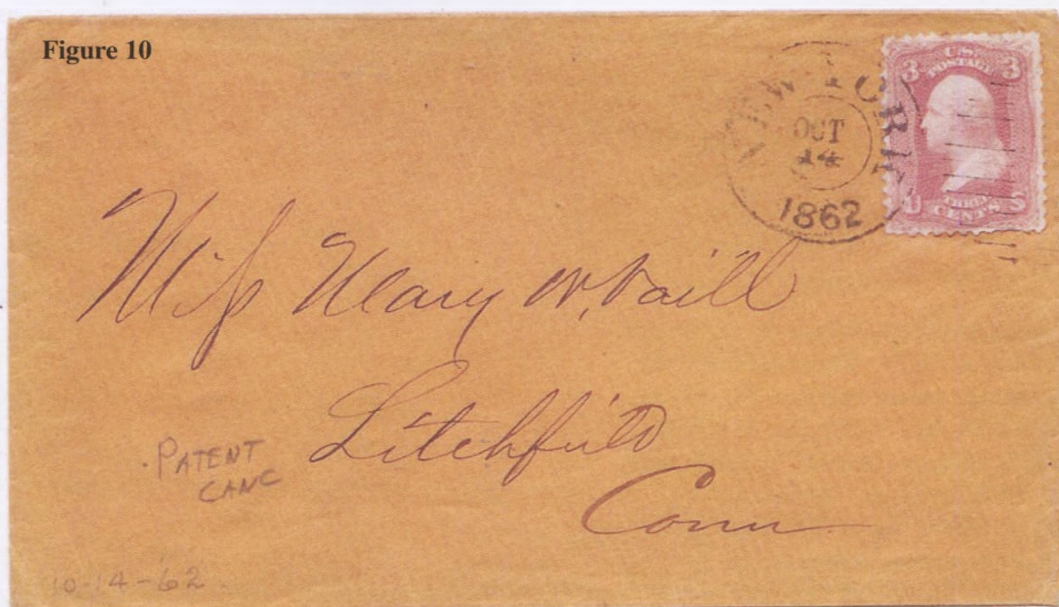 Figure 10
NEW-YORK
OCT
14
1862
U.S.
POSTAGE
3 3
THREE
U CENTS S
Miss Mary W. Vaill
Litchfield
Conn
PATENT
CANC
10-14-62.